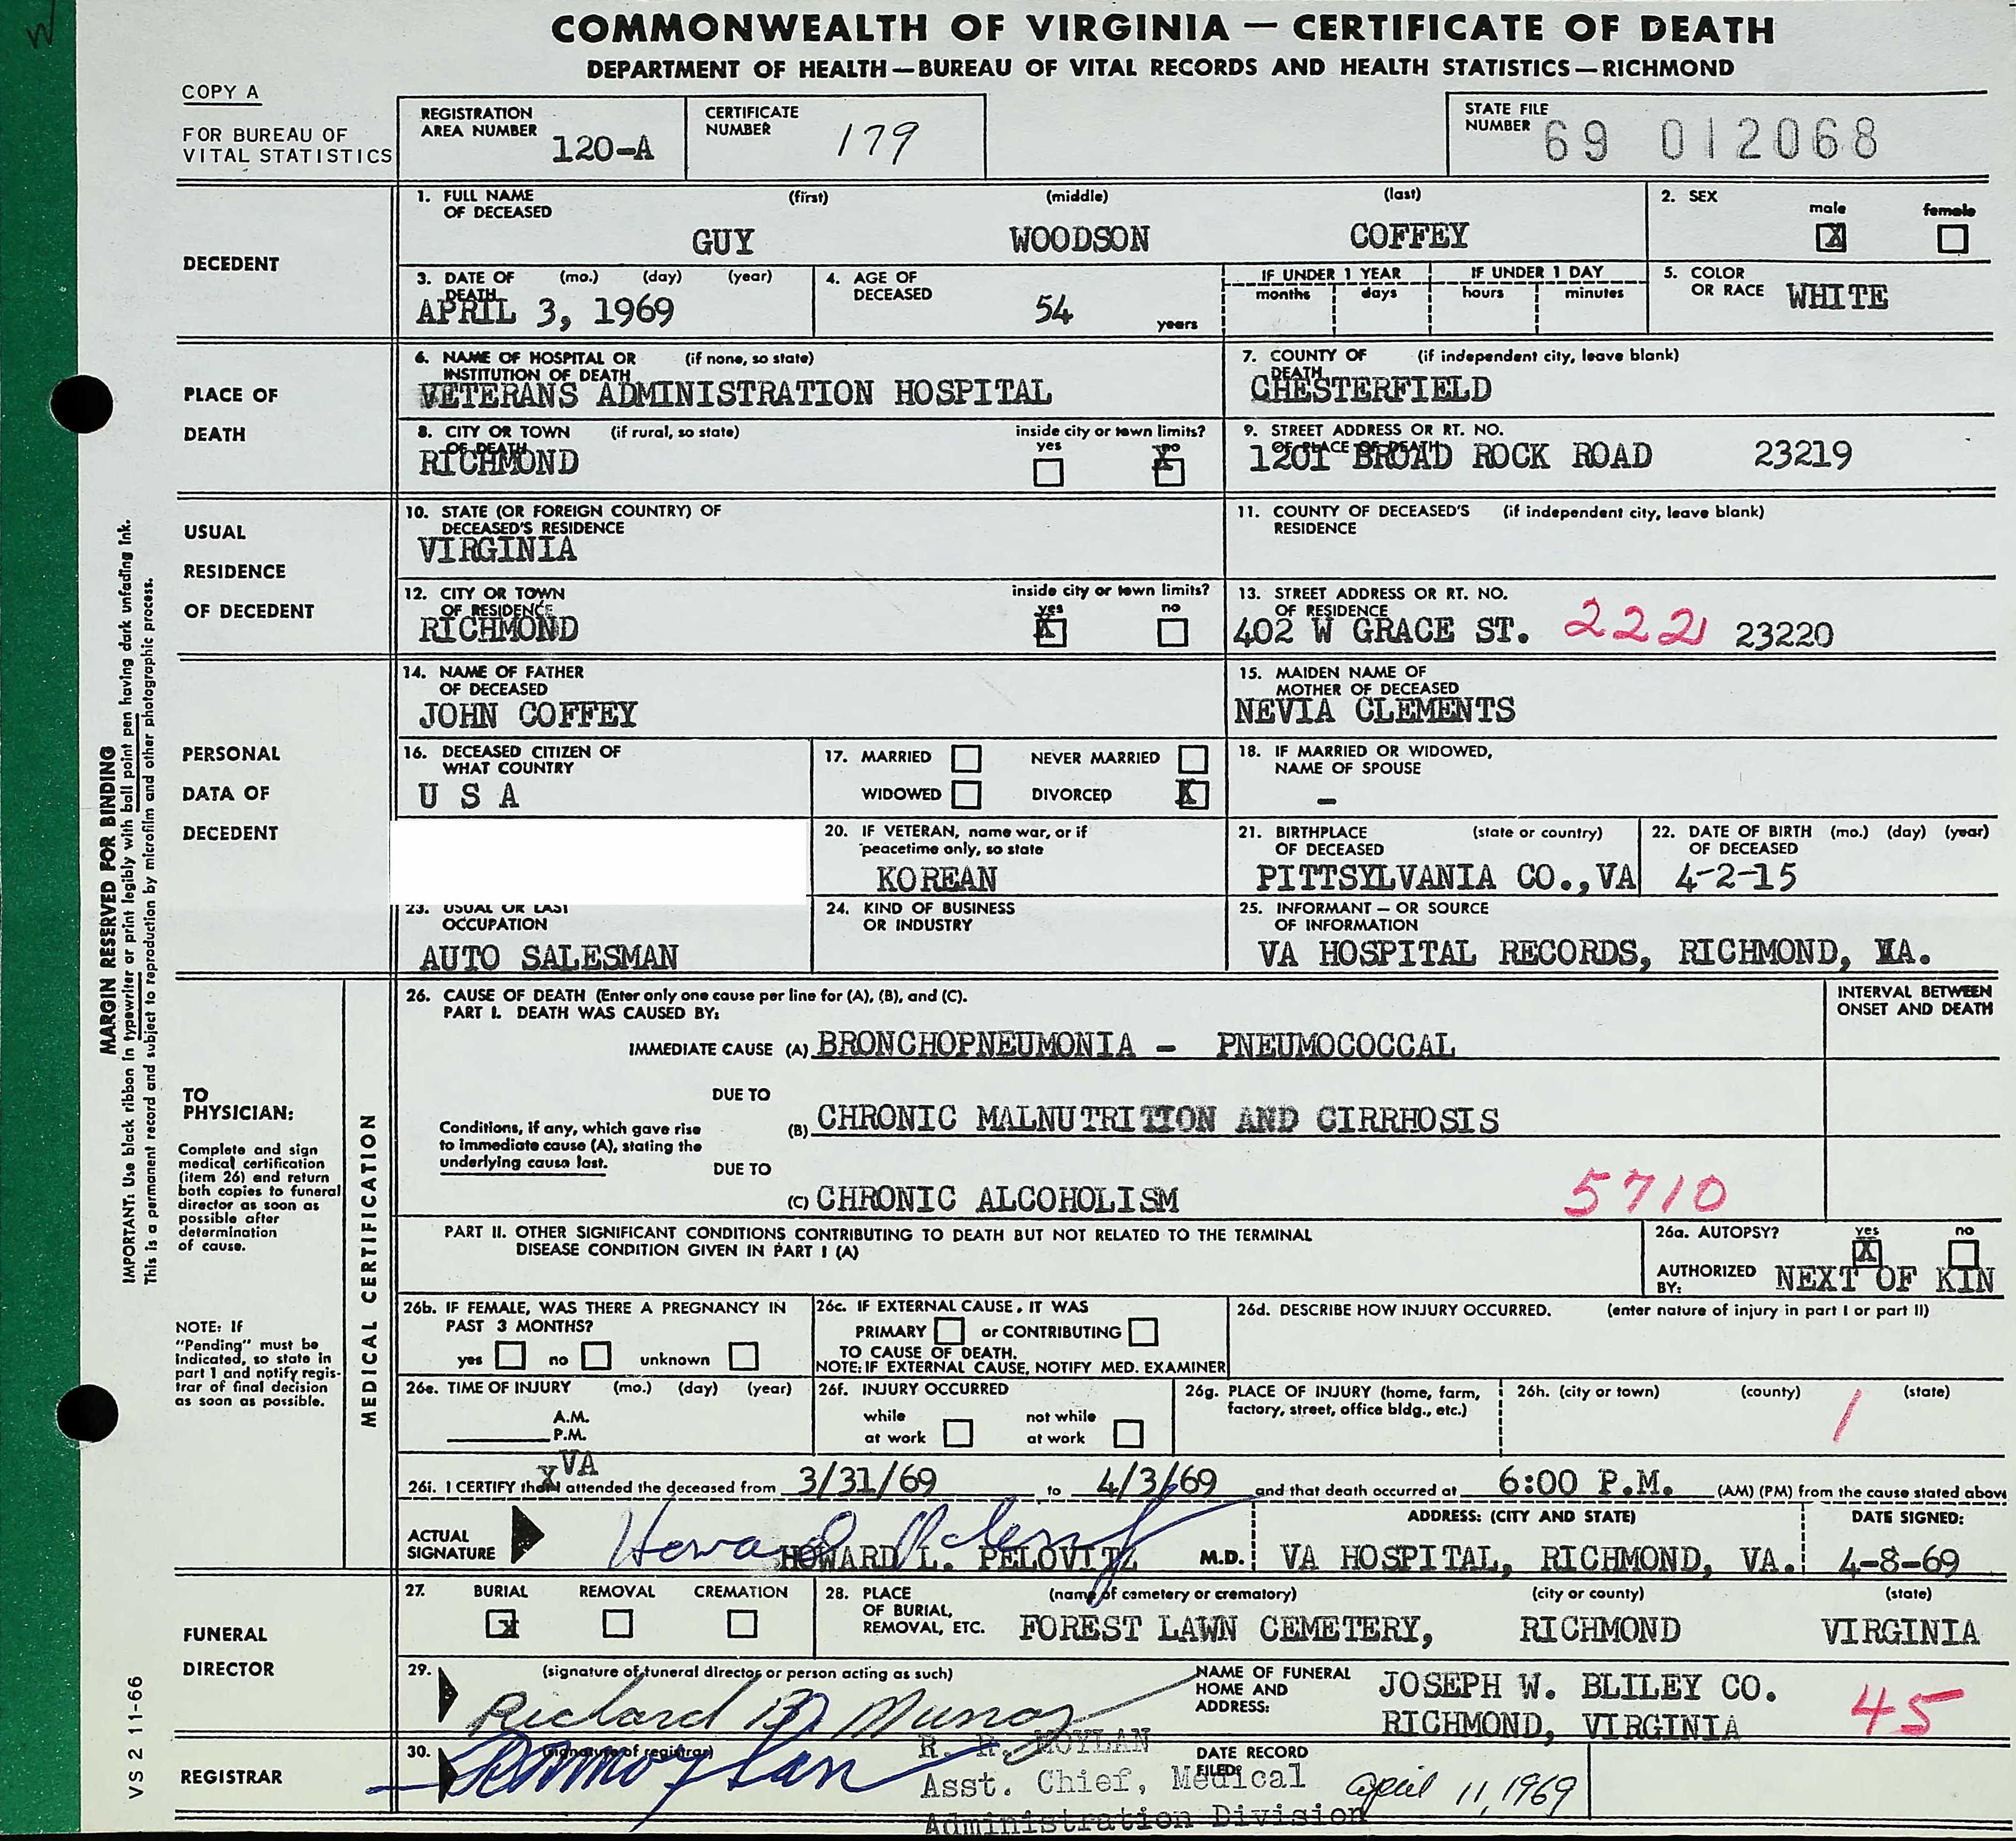 COMMONWEALTH OF VIRGINIA — CERTIFICATE OF DEATH
DEPARTMENT OF HEALTH—BUREAU OF VITAL RECORDS AND HEALTH STATISTICS—RICHMOND
COPY A
FOR BUREAU OF
VITAL STATISTICS
REGISTRATION
AREA NUMBER 120-A
CERTIFICATE
NUMBER 179
STATE FILE
NUMBER 69 012068
DECEDENT
1. FULL NAME OF DECEASED (first) (middle) (last)
GUY WOODSON COFFEY
2. SEX
male X female
3. DATE OF DEATH (mo.) (day) (year)
APRIL 3, 1969
4. AGE OF DECEASED
54 years
IF UNDER 1 YEAR
months days
IF UNDER 1 DAY
hours minutes
5. COLOR OR RACE WHITE
PLACE OF
DEATH
6. NAME OF HOSPITAL OR (if none, so state)
INSTITUTION OF DEATH
VETERANS ADMINISTRATION HOSPITAL
7. COUNTY OF DEATH (if independent city, leave blank)
CHESTERFIELD
8. CITY OR TOWN OF DEATH (if rural, so state)
RICHMOND
inside city or town limits?
yes no X
9. STREET ADDRESS OR RT. NO.
OF PLACE OF DEATH
1201 BROAD ROCK ROAD 23219
USUAL
RESIDENCE
OF DECEDENT
10. STATE (OR FOREIGN COUNTRY) OF
DECEASED'S RESIDENCE
VIRGINIA
11. COUNTY OF DECEASED'S (if independent city, leave blank)
RESIDENCE
12. CITY OR TOWN
OF RESIDENCE
RICHMOND
inside city or town limits?
yes X no
13. STREET ADDRESS OR RT. NO.
OF RESIDENCE
402 W GRACE ST. 222 23220
PERSONAL
DATA OF
DECEDENT
14. NAME OF FATHER
OF DECEASED
JOHN COFFEY
15. MAIDEN NAME OF
MOTHER OF DECEASED
NEVIA CLEMENTS
16. DECEASED CITIZEN OF
WHAT COUNTRY
U S A
17. MARRIED NEVER MARRIED
WIDOWED DIVORCED X
18. IF MARRIED OR WIDOWED,
NAME OF SPOUSE
-
20. IF VETERAN, name war, or if
peacetime only, so state
KOREAN
21. BIRTHPLACE (state or country)
OF DECEASED
PITTSYLVANIA CO.,VA
22. DATE OF BIRTH (mo.) (day) (year)
OF DECEASED
4-2-15
23. USUAL OR LAST
OCCUPATION
AUTO SALESMAN
24. KIND OF BUSINESS
OR INDUSTRY
25. INFORMANT — OR SOURCE
OF INFORMATION
VA HOSPITAL RECORDS, RICHMOND, VA.
MARGIN RESERVED FOR BINDING
IMPORTANT: Use black ribbon in typewriter or print legibly with ball point pen having dark unfading ink.
This is a permanent record and subject to reproduction by microfilm and other photographic process.
TO
PHYSICIAN:
Complete and sign
medical certification
(item 26) and return
both copies to funeral
director as soon as
possible after
determination
of cause.
NOTE: If
"Pending" must be
indicated, so state in
part 1 and notify regis-
trar of final decision
as soon as possible.
MEDICAL CERTIFICATION
26. CAUSE OF DEATH (Enter only one cause per line for (A), (B), and (C).
PART I. DEATH WAS CAUSED BY:
INTERVAL BETWEEN
ONSET AND DEATH
IMMEDIATE CAUSE (A) BRONCHOPNEUMONIA - PNEUMOCOCCAL
DUE TO
Conditions, if any, which gave rise
to immediate cause (A), stating the
underlying cause last.
(B) CHRONIC MALNUTRITION AND CIRRHOSIS
DUE TO
(C) CHRONIC ALCOHOLISM 5710
PART II. OTHER SIGNIFICANT CONDITIONS CONTRIBUTING TO DEATH BUT NOT RELATED TO THE TERMINAL
DISEASE CONDITION GIVEN IN PART I (A)
26a. AUTOPSY? yes X no
AUTHORIZED
BY: NEXT OF KIN
26b. IF FEMALE, WAS THERE A PREGNANCY IN
PAST 3 MONTHS?
yes no unknown
26c. IF EXTERNAL CAUSE, IT WAS
PRIMARY or CONTRIBUTING
TO CAUSE OF DEATH.
NOTE: IF EXTERNAL CAUSE, NOTIFY MED. EXAMINER
26d. DESCRIBE HOW INJURY OCCURRED. (enter nature of injury in part I or part II)
26e. TIME OF INJURY (mo.) (day) (year)
A.M.
P.M.
26f. INJURY OCCURRED
while not while
at work at work
26g. PLACE OF INJURY (home, farm,
factory, street, office bldg., etc.)
26h. (city or town) (county) (state)
1
X VA
26i. I CERTIFY that I attended the deceased from 3/31/69 to 4/3/69 and that death occurred at 6:00 P.M. (AM) (PM) from the cause stated above
ACTUAL
SIGNATURE
HOWARD L. PELOVITZ M.D.
ADDRESS: (CITY AND STATE)
VA HOSPITAL, RICHMOND, VA.
DATE SIGNED:
4-8-69
FUNERAL
DIRECTOR
27. BURIAL REMOVAL CREMATION
X
28. PLACE
OF BURIAL,
REMOVAL, ETC.
(name of cemetery or crematory) (city or county) (state)
FOREST LAWN CEMETERY, RICHMOND VIRGINIA
29. (signature of funeral director or person acting as such)
Richard
NAME OF FUNERAL
HOME AND
ADDRESS:
JOSEPH W. BLILEY CO.
RICHMOND, VIRGINIA 45
REGISTRAR
30. (signature of registrar)
R. R. MOYLAN
Asst. Chief, Medical
Administration Division
DATE RECORD
FILED:
April 11, 1969
VS 2 11-66